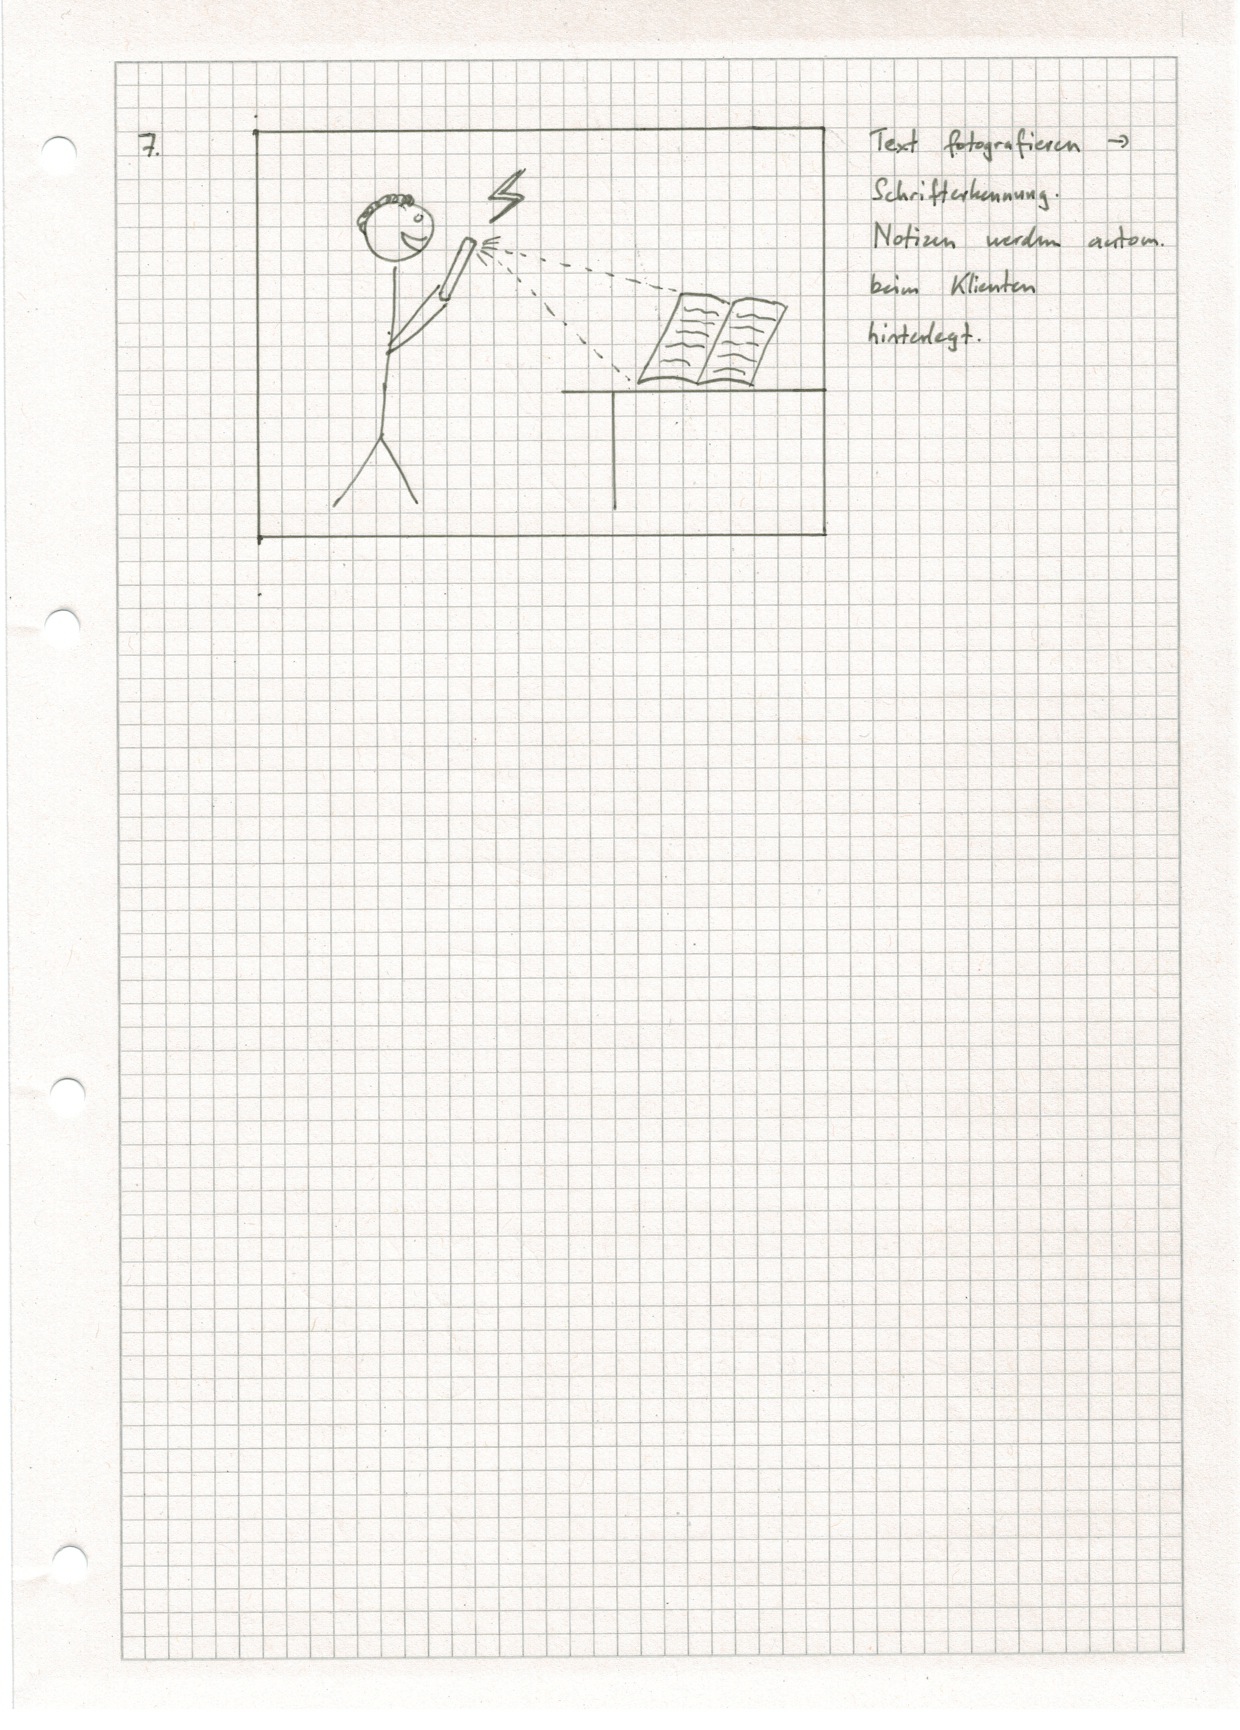 7.
Text fotografieren →
Schrifterkennung.
Notizen werden autom.
beim Klienten
hinterlegt.